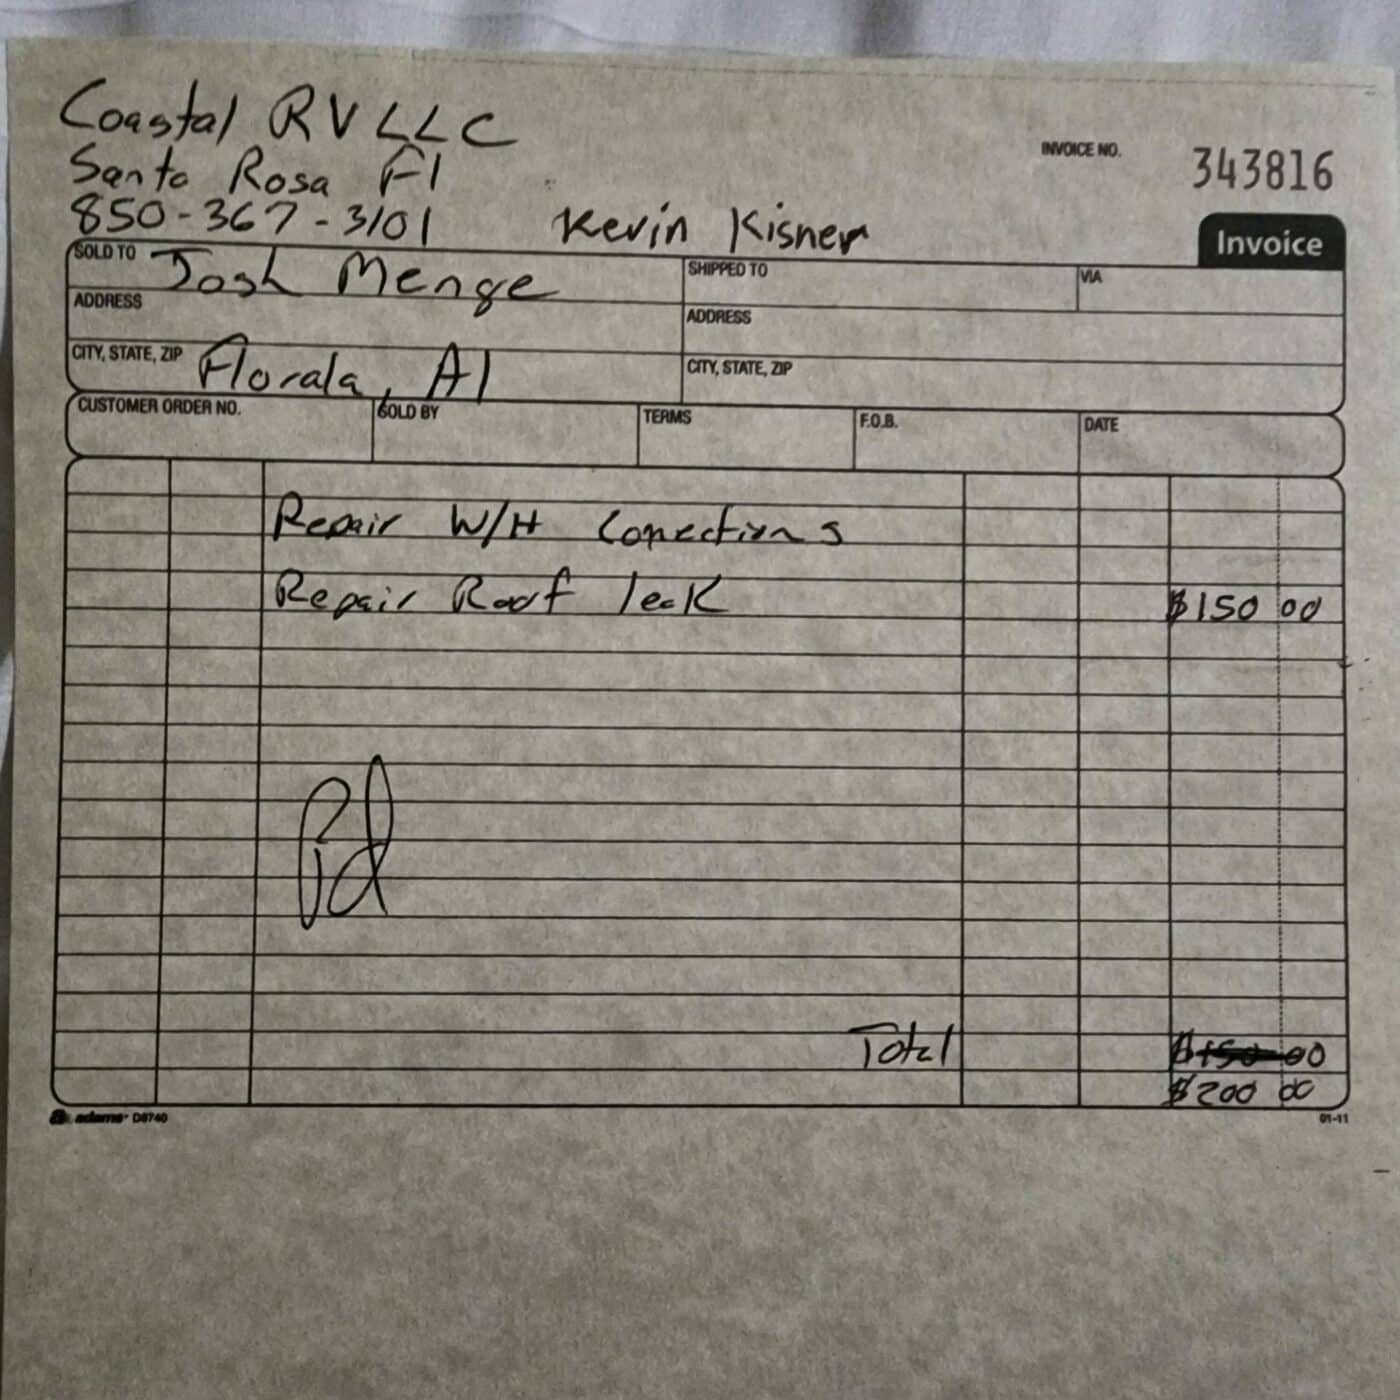 Coastal RV LLC
Santa Rosa Fl
INVOICE NO. 343816
850-367-3101 Kevin Kisner
Invoice
SOLD TO Josh Menge
SHIPPED TO
VIA
ADDRESS
ADDRESS
CITY, STATE, ZIP Florala, Al
CITY, STATE, ZIP
CUSTOMER ORDER NO.
SOLD BY
TERMS
F.O.B.
DATE
Repair W/H Conections
Repair Roof leak $150 00
Pd
Total $150 00
$200 00
adams D8740
01-11